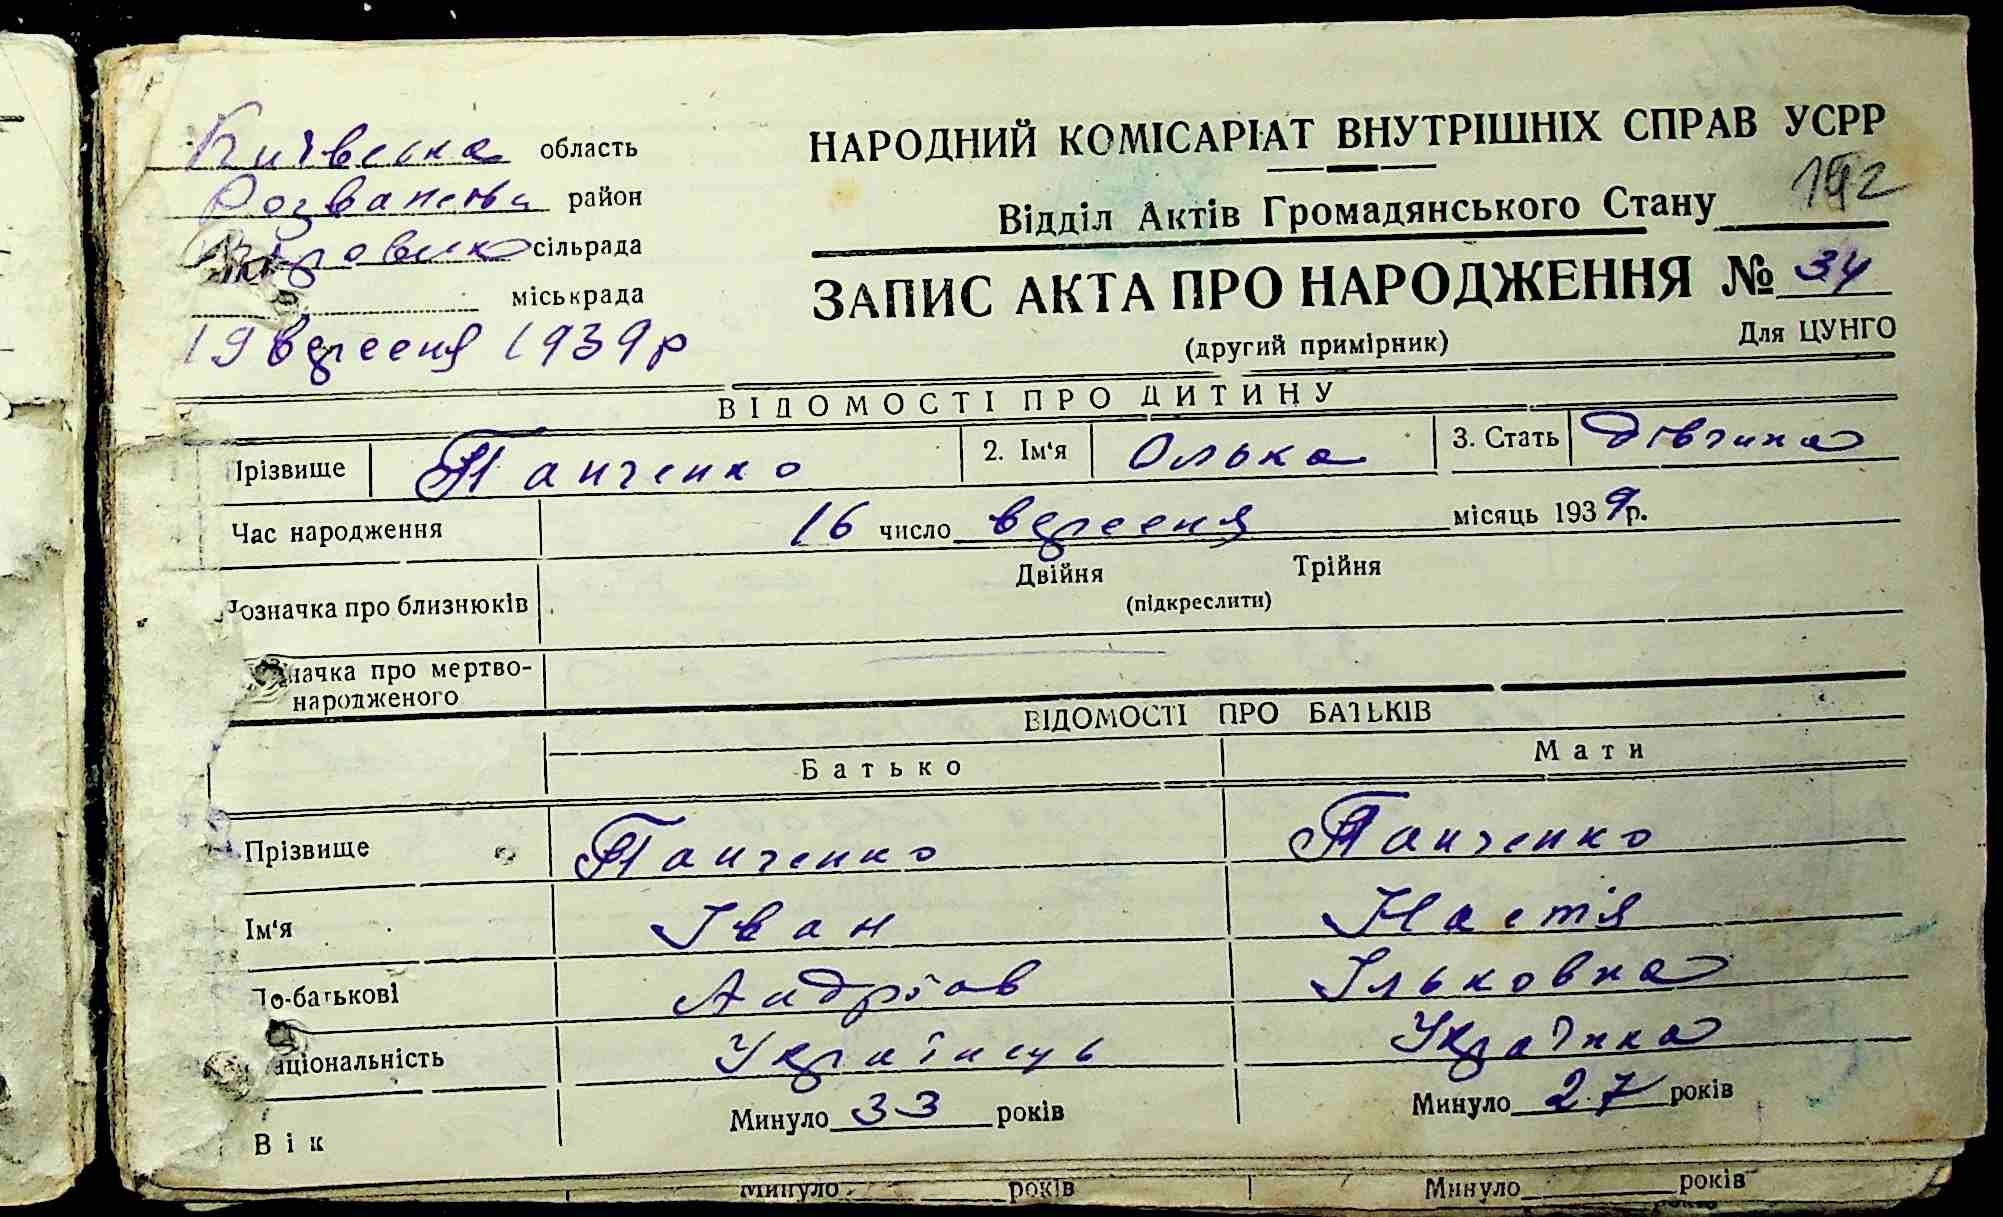 Київська область
Розваже́вськ район
сільрада
міськрада
19 вересня 1939 р
НАРОДНИЙ КОМІСАРІАТ ВНУТРІШНІХ СПРАВ УСРР
Відділ Актів Громадянського Стану
192
ЗАПИС АКТА ПРО НАРОДЖЕННЯ № 34
(другий примірник) Для ЦУНГО
ВІДОМОСТІ ПРО ДИТИНУ
Прізвище Панченко 2. Ім'я Олька 3. Стать дівчина
Час народження 16 число вересня місяць 1939 р.
Двійня Трійня
Позначка про близнюків (підкреслити)
значка про мертво-
народженого
ВІДОМОСТІ ПРО БАТЬКІВ
Батько Мати
Прізвище Панченко Панченко
Ім'я Іван Настя
По-батькові Андріїв Ільковна
Національність Українець Українка
Вік Минуло 33 років Минуло 27 років
Минуло років Минуло років